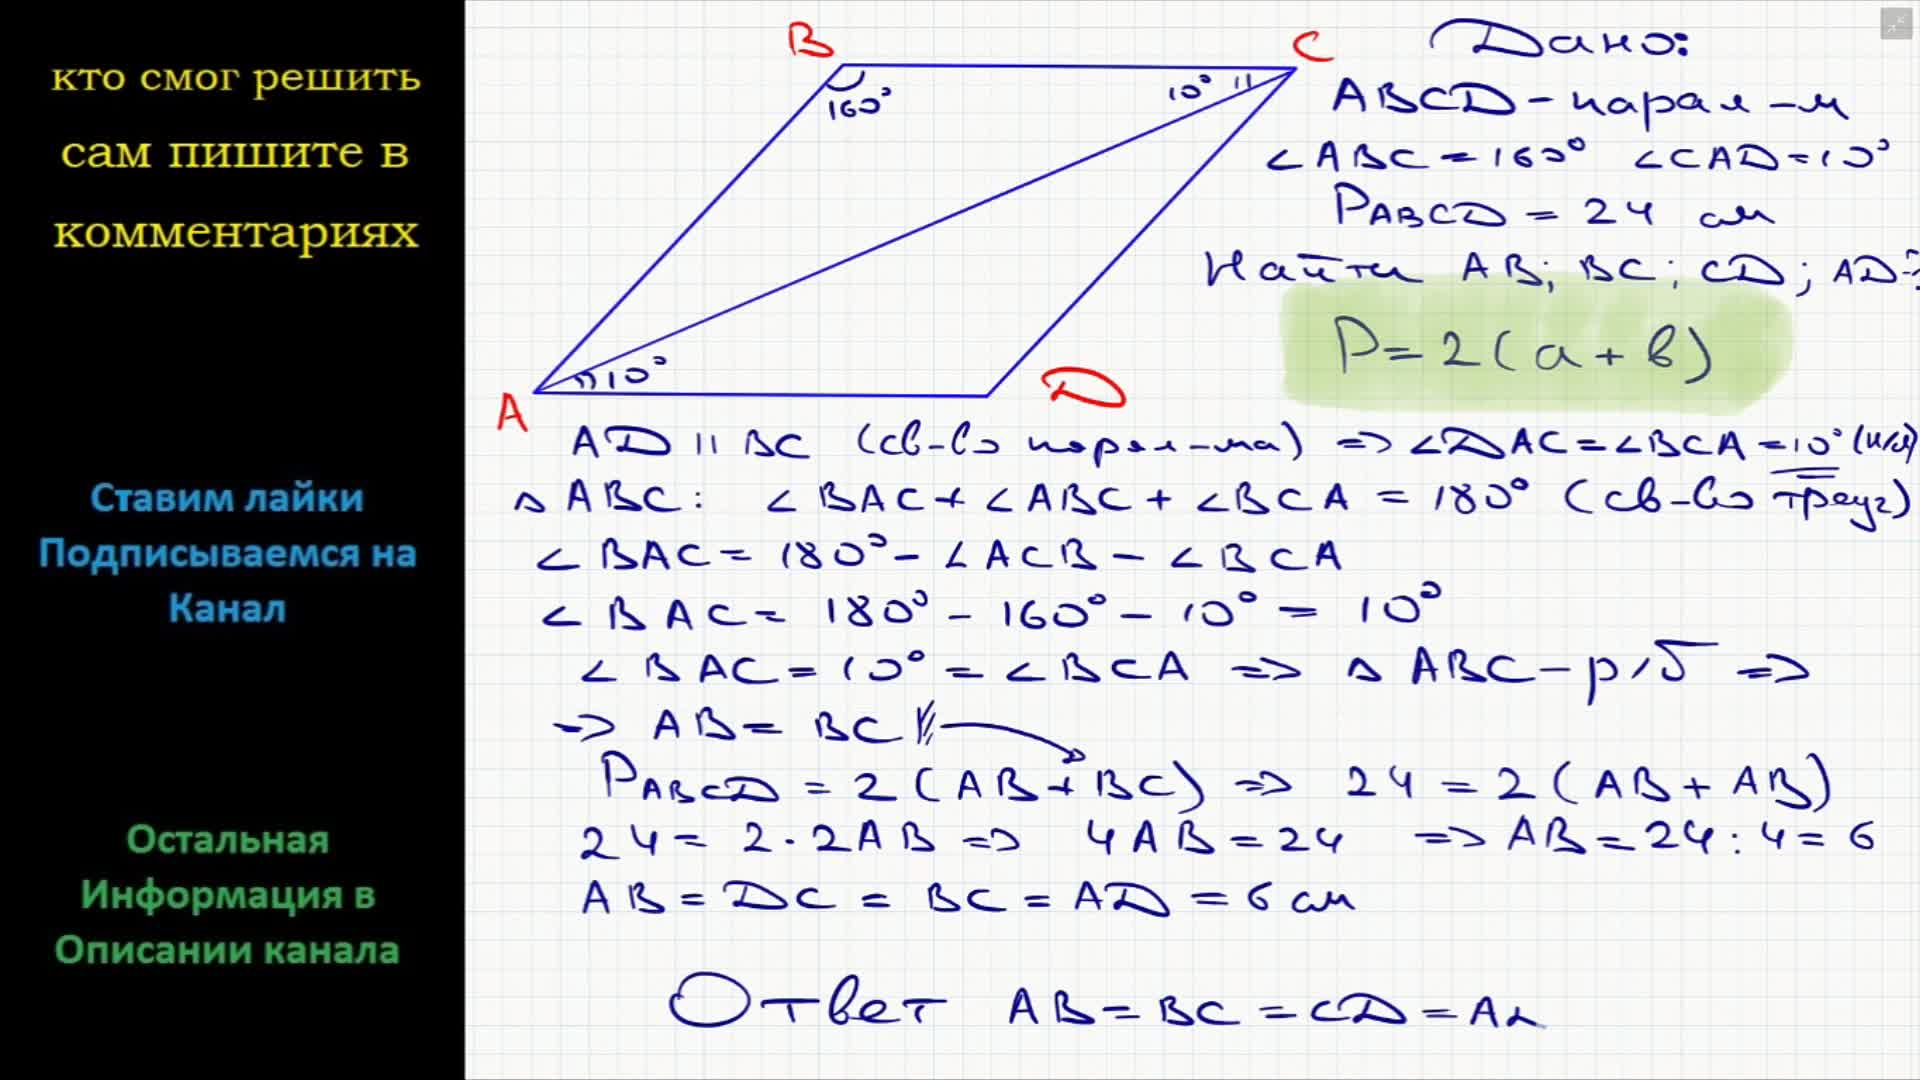 кто смог решить
сам пишите в
комментариях
Ставим лайки
Подписываемся на
Канал
Остальная
Информация в
Описании канала
B
C
160°
10°
10°
A
D
Дано:
ABCD - парал-м
∠ABC = 160° ∠CAD = 10°
P_ABCD = 24 см
Найти AB; BC; CD; AD-?
P = 2(a + b)
AD || BC (св-во парал-ма) => ∠DAC = ∠BCA = 10° (н/л)
△ABC: ∠BAC + ∠ABC + ∠BCA = 180° (св-во треуг)
∠BAC = 180° - ∠ACB - ∠BCA
∠BAC = 180° - 160° - 10° = 10°
∠BAC = 10° = ∠BCA => △ABC - р/б =>
=> AB = BC
P_ABCD = 2(AB + BC) => 24 = 2(AB + AB)
24 = 2 · 2AB => 4AB = 24 => AB = 24 : 4 = 6
AB = DC = BC = AD = 6 см
Ответ AB = BC = CD = A